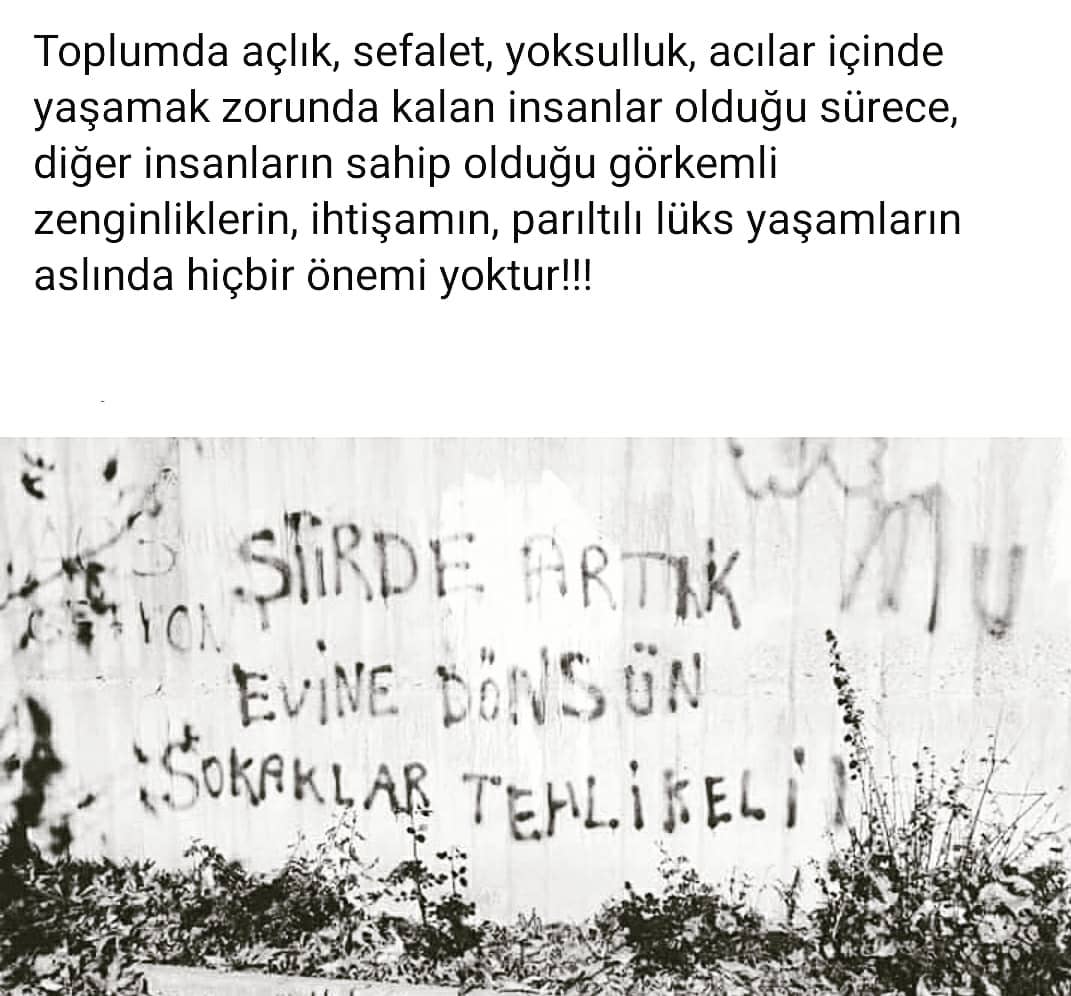 Toplumda açlık, sefalet, yoksulluk, acılar içinde
yaşamak zorunda kalan insanlar olduğu sürece,
diğer insanların sahip olduğu görkemli
zenginliklerin, ihtişamın, parıltılı lüks yaşamların
aslında hiçbir önemi yoktur!!!
ŞİİRDE ARTIK
EVİNE DÖNSÜN
SOKAKLAR TEHLİKELİ
MU